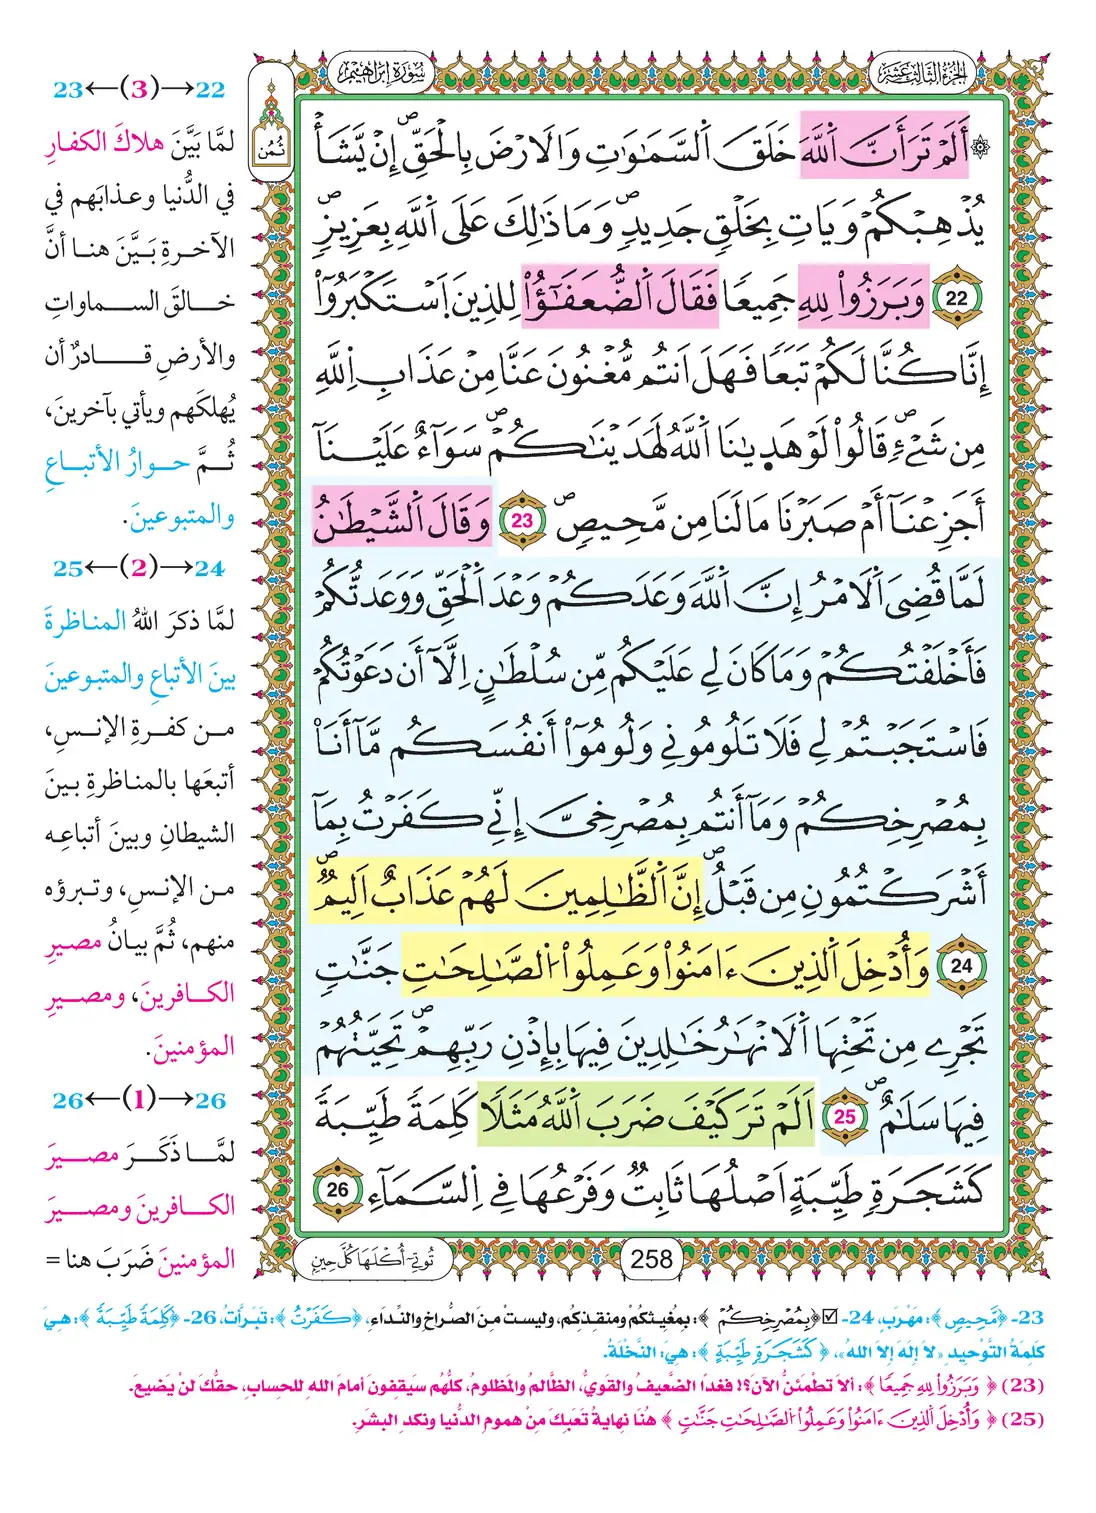 الجزء الثالث عشر
سورة إبراهيم
ثمن
۞ أَلَمْ تَرَ أَنَّ اَ۬للَّهَ خَلَقَ اَ۬لسَّمَٰوَٰتِ وَالَارْضَ بِالْحَقِّۖ إِنْ يَّشَأْ
يُذْهِبْكُمْ وَيَاتِ بِخَلْقٖ جَدِيدٖۖ وَمَا ذَٰلِكَ عَلَى اَ۬للَّهِ بِعَزِيزٖۖ
22 وَبَرَزُواْ لِلهِ جَمِيعاٗ فَقَالَ اَ۬لضُّعَفَٰٓؤُاْ لِلذِينَ اَ۪سْتَكْبَرُوٓاْ
إِنَّا كُنَّا لَكُمْ تَبَعاٗ فَهَلَ اَنتُم مُّغْنُونَ عَنَّا مِنْ عَذَابِ اِ۬للَّهِ
مِن شَےْءٖۖ قَالُواْ لَوْ هَدۭىٰنَا اَ۬للَّهُ لَهَدَيْنَٰكُمْۖ سَوَآءٌ عَلَيْنَآ
أَجَزِعْنَآ أَمْ صَبَرْنَا مَا لَنَا مِن مَّحِيصٖۖ 23 وَقَالَ اَ۬لشَّيْطَٰنُ
لَمَّا قُضِيَ اَ۬لَامْرُ إِنَّ اَ۬للَّهَ وَعَدَكُمْ وَعْدَ اَ۬لْحَقِّ وَوَعَدتُّكُمْ
فَأَخْلَفْتُكُمْ وَمَا كَانَ لِي عَلَيْكُم مِّن سُلْطَٰنٍ اِلَّآ أَن دَعَوْتُكُمْ
فَاسْتَجَبْتُمْ لِي فَلَا تَلُومُونِي وَلُومُوٓاْ أَنفُسَكُم مَّآ أَنَا۠
بِمُصْرِخِكُمْ وَمَآ أَنتُم بِمُصْرِخِيَّ إِنِّي كَفَرْتُ بِمَآ
أَشْرَكْتُمُونِ مِن قَبْلُۖ إِنَّ اَ۬لظَّٰلِمِينَ لَهُمْ عَذَابٌ اَلِيمٞۖ
24 وَأُدْخِلَ اَ۬لذِينَ ءَامَنُواْ وَعَمِلُواْ اُ۬لصَّٰلِحَٰتِ جَنَّٰتٖ
تَجْرِے مِن تَحْتِهَا اَ۬لَانْهَٰرُ خَٰلِدِينَ فِيهَا بِإِذْنِ رَبِّهِمْۖ تَحِيَّتُهُمْ
فِيهَا سَلَٰمٌۖ 25 اَلَمْ تَرَ كَيْفَ ضَرَبَ اَ۬للَّهُ مَثَلاٗ كَلِمَةٗ طَيِّبَةٗ
كَشَجَرَةٖ طَيِّبَةٍ اَصْلُهَا ثَابِتٞ وَفَرْعُهَا فِي اِ۬لسَّمَآءِ 26
258
تُوتِےٓ أُكْلَهَا كُلَّ حِينِۭ
22←(3)→23
لمَّا بَيَّنَ هلاكَ الكفارِ
في الدُّنيا وعذابَهم في
الآخرةِ بَيَّنَ هنا أنَّ
خالقَ السماواتِ
والأرضِ قادرٌ أن
يُهلكَهم ويأتي بآخرينَ،
ثُمَّ حوارُ الأتباعِ
والمتبوعينَ.
24←(2)→25
لمَّا ذكرَ اللهُ المناظرةَ
بينَ الأتباعِ والمتبوعينَ
من كفرةِ الإنسِ،
أتبعَها بالمناظرةِ بينَ
الشيطانِ وبينَ أتباعِه
من الإنسِ، وتبرؤه
منهم، ثُمَّ بيانُ مصيرِ
الكافرينَ، ومصيرِ
المؤمنينَ.
26←(1)→26
لمَّا ذَكَرَ مصيرَ
الكافرينَ ومصيرَ
المؤمنينَ ضَرَبَ هنا =
23- ﴿مَّحِيصٖ﴾: مَهْرَبٍ، 24- ☑﴿بِمُصْرِخِكُمْ﴾: بمُغِيثكُمْ ومنقذِكم، وليستْ منَ الصُّراخِ والنِّداءِ، ﴿كَفَرْتُ﴾: تبَرأتُ، 26- ﴿كَلِمَةٗ طَيِّبَةٗ﴾: هيَ
كلمةُ التَّوْحيدِ «لا إلهَ إلا اللهُ»، ﴿كَشَجَرَةٖ طَيِّبَةٍ﴾: هيَ: النَّخْلَةُ.
(23) ﴿وَبَرَزُواْ لِلهِ جَمِيعاٗ﴾: ألا تطمئنُّ الآنَ؟! فغدًا الضَّعيفُ والقويُّ، الظَّالمُ والمَظلومُ، كلُّهم سَيقفونَ أمامَ اللهِ للحسابِ، حقُّكَ لنْ يَضيعَ.
(25) ﴿وَأُدْخِلَ اَ۬لذِينَ ءَامَنُواْ وَعَمِلُواْ اُ۬لصَّٰلِحَٰتِ جَنَّٰتٖ﴾ هُنَا نهايةُ تَعَبكَ منْ همومِ الدُّنيا ونكدِ البشَرِ.